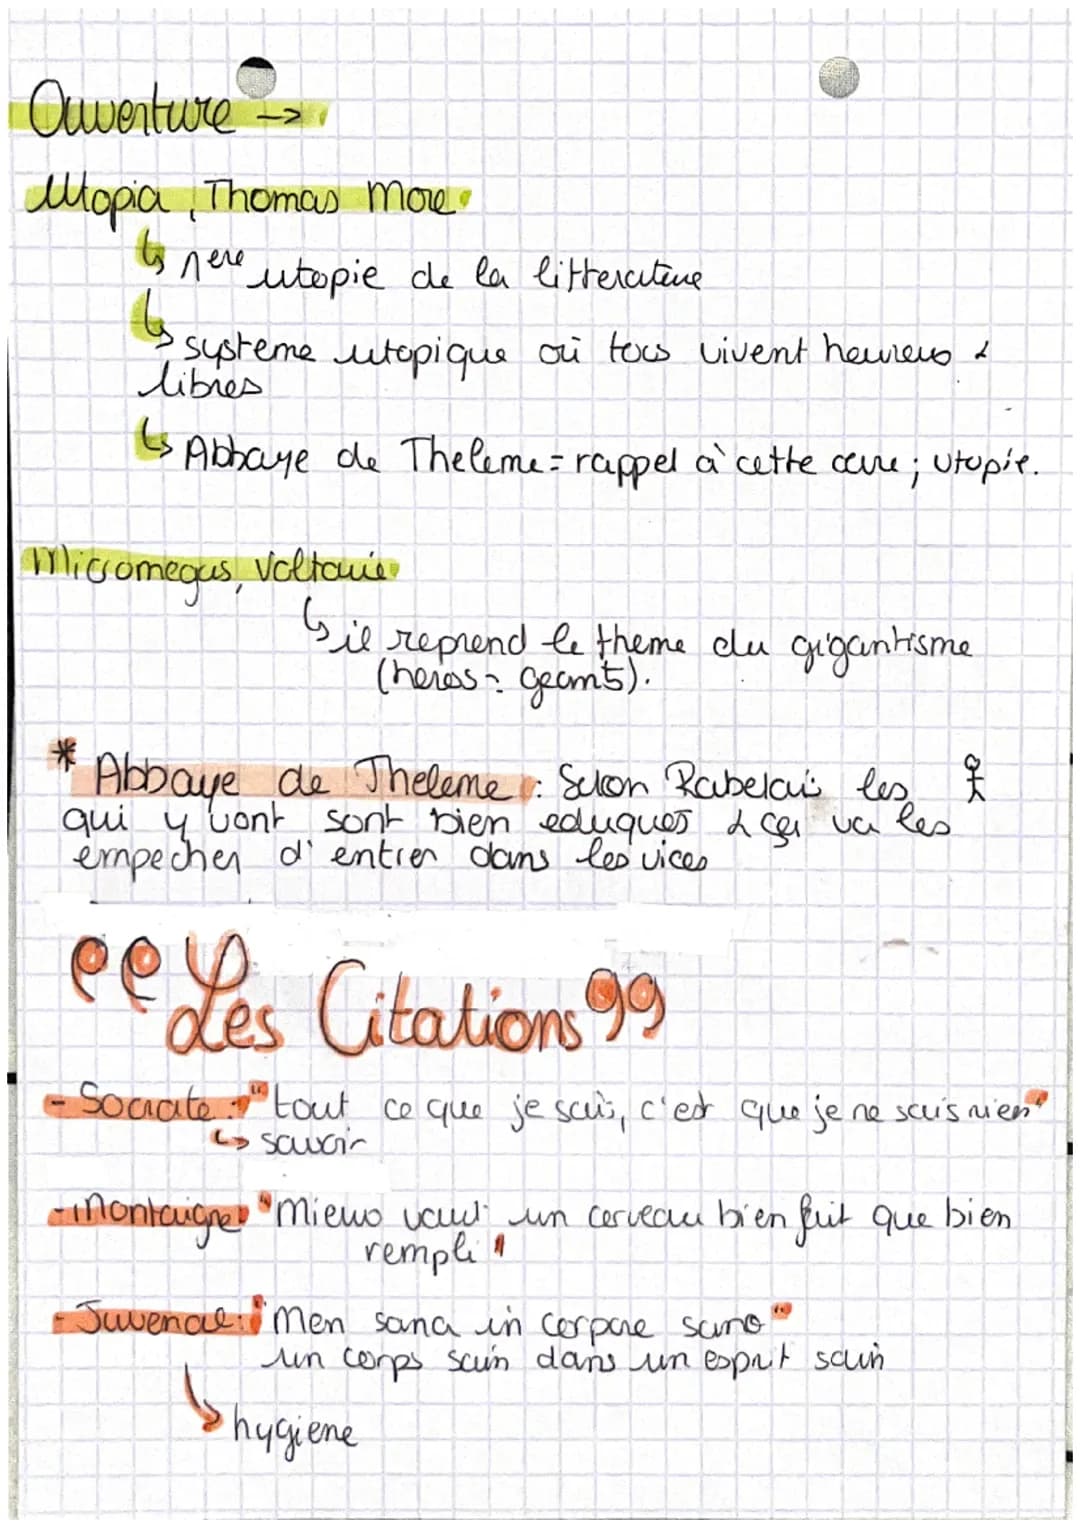 Ouverture ->
Utopia, Thomas More
↳ 1ere utopie de la litterature
↳ systeme utopique où tous vivent heureux &
libres
↳ Abbaye de Theleme = rappel à cette œuvre ; utopie.
Micromegas, Voltaire
↳ il reprend le theme du gigantisme
(heros = geants).
* Abbaye de Theleme : Selon Rabelais les
qui y vont sont bien eduques & ça va les
empecher d'entrer dans les vices
"Les Citations"
- Socrate : "tout ce que je sais, c'est que je ne sais rien"
↳ savoir
- Montaigne: "Mieux vaut un cerveau bien fait que bien
rempli"
- Juvenal: "Men sana in corpore sano"
un corps sain dans un esprit sain
↳ hygiene